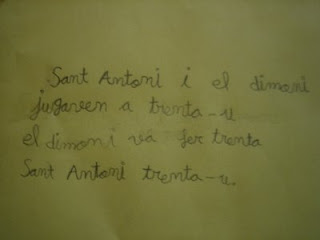 Sant Antoni i el dimoni
jugaven a trenta-u
el dimoni va fer trenta
Sant Antoni trenta-u.